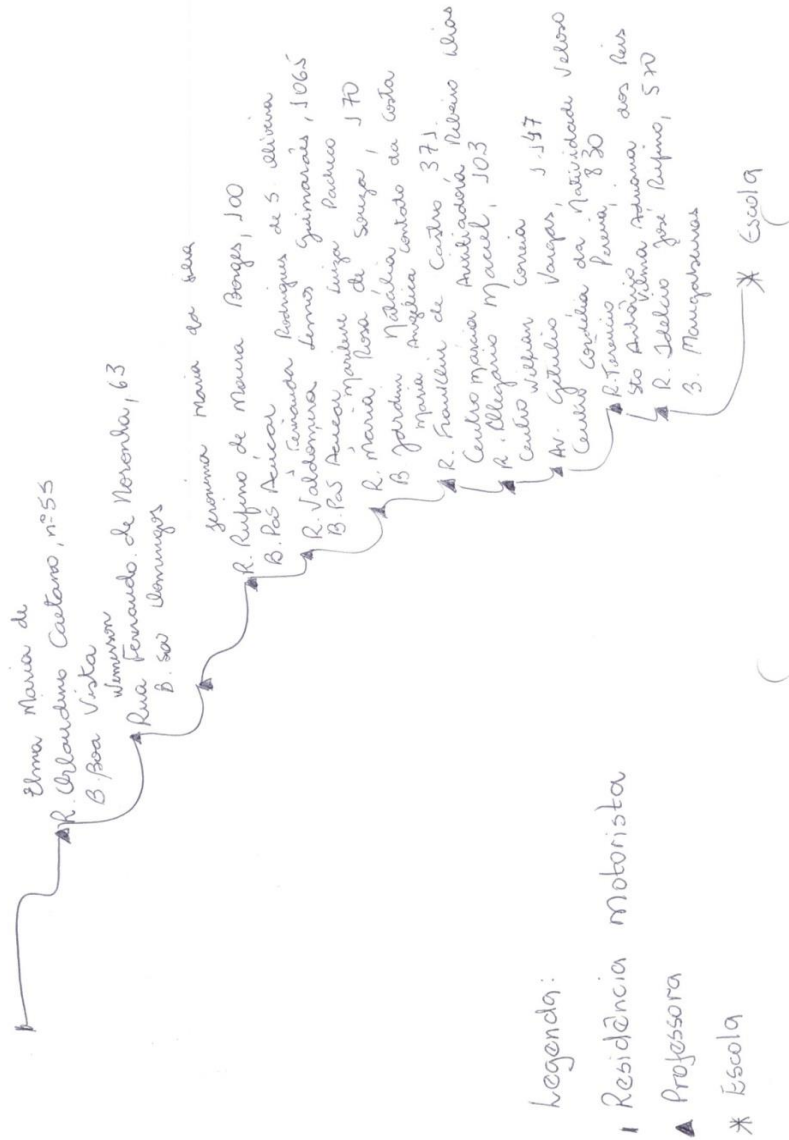 Elma Maria de
R. Orlandino Caetano, nº 55
B. Boa Vista
Wemerson
Rua Fernando. de Noronha, 63
B. São Domingos
Jerônima Maria da Silva
R. Rufino de Moura Borges, 100
B. Pas Açúcar
Fernanda Rodrigues de S Oliveira
R. Valdomira Lemos Guimarães, 1065
B. Pas Açucar Marilene Luiza Pacheco
R. Maria Rosa de Souza, 170
B Jardim Natália
Maria Angélica contado da Costa
R. Franklin de Castro, 371.
Centro Marcia Auxiliadora Ribeiro Dias
R. Ollegário Maciel, 103
Centro Willian Correia
Av. Getúlio Vargas, 1.147
Centro Cordélia da Natividade Veloso
R. Terencio Pereira, 830
Sto Antônio Vilma Adriana dos Reis
R. Idelcio José Rufino, 570
B. Mangabeiras
Escola
Legenda:
Residência motorista
Professora
Escola